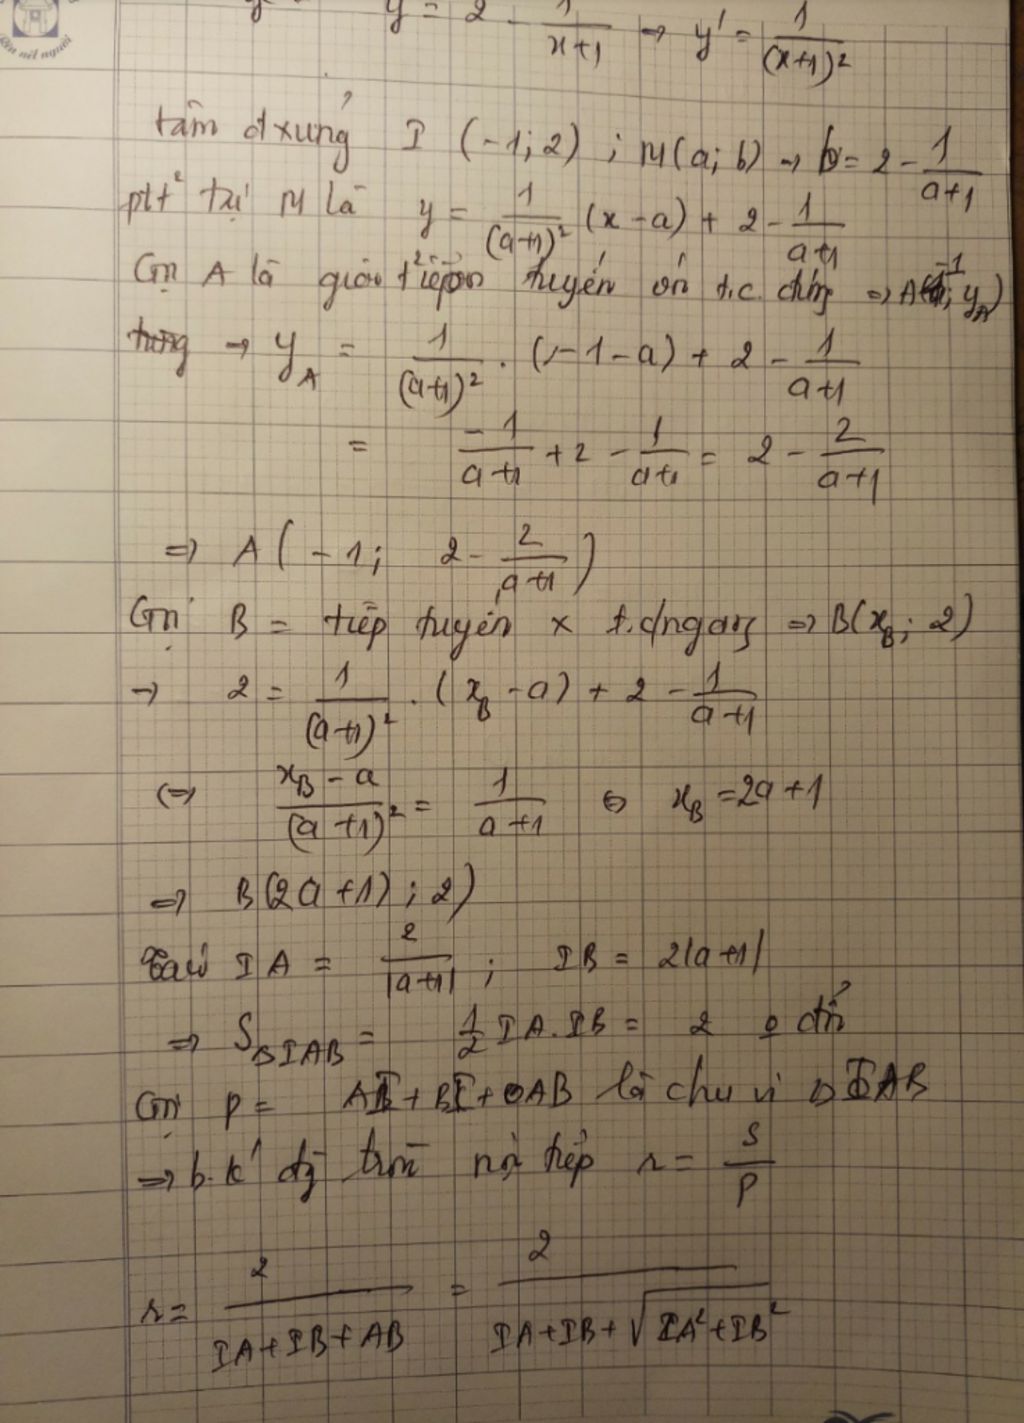 y = 2 - 1/(x+1) → y' = 1/(x+1)²
nét người
tâm đ xứng I (-1; 2) ; M(a; b) → b = 2 - 1/(a+1)
ptt² tại M là y = 1/(a+1)² (x - a) + 2 - 1/(a+1)
Gọi A là giao tiếp tuyến với t.c. đứng ⇒ A(-1; y_A)
→ y_A = 1/(a+1)² . (-1 - a) + 2 - 1/(a+1)
= -1/(a+1) + 2 - 1/(a+1) = 2 - 2/(a+1)
⇒ A(-1; 2 - 2/(a+1))
Gọi B = tiếp tuyến x t.c ngang ⇒ B(x_B; 2)
→ 2 = 1/(a+1)² . (x_B - a) + 2 - 1/(a+1)
⇔ (x_B - a)/(a+1)² = 1/(a+1) ⇔ x_B = 2a + 1
⇒ B(2a + 1) ; 2)
IA = 2/|a+1| ; IB = 2|a+1|
⇒ S_ΔIAB = 1/2 IA.IB = 2 đổi
Gọi P = AI + BI + AB là chu vi Δ IAB
⇒ b.k đg tròn nội tiếp r = S/P
r = 2/(IA + IB + AB) = 2/(IA + IB + √(IA² + IB²))